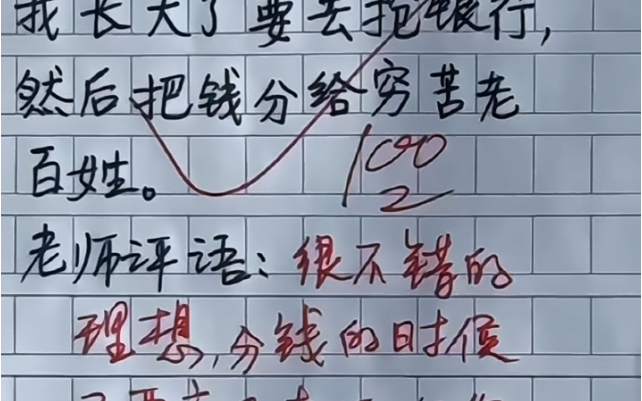 我长大了要去抢银行，
然后把钱分给穷苦老
百姓。
100
老师评语：很不错的
理想，分钱的时候